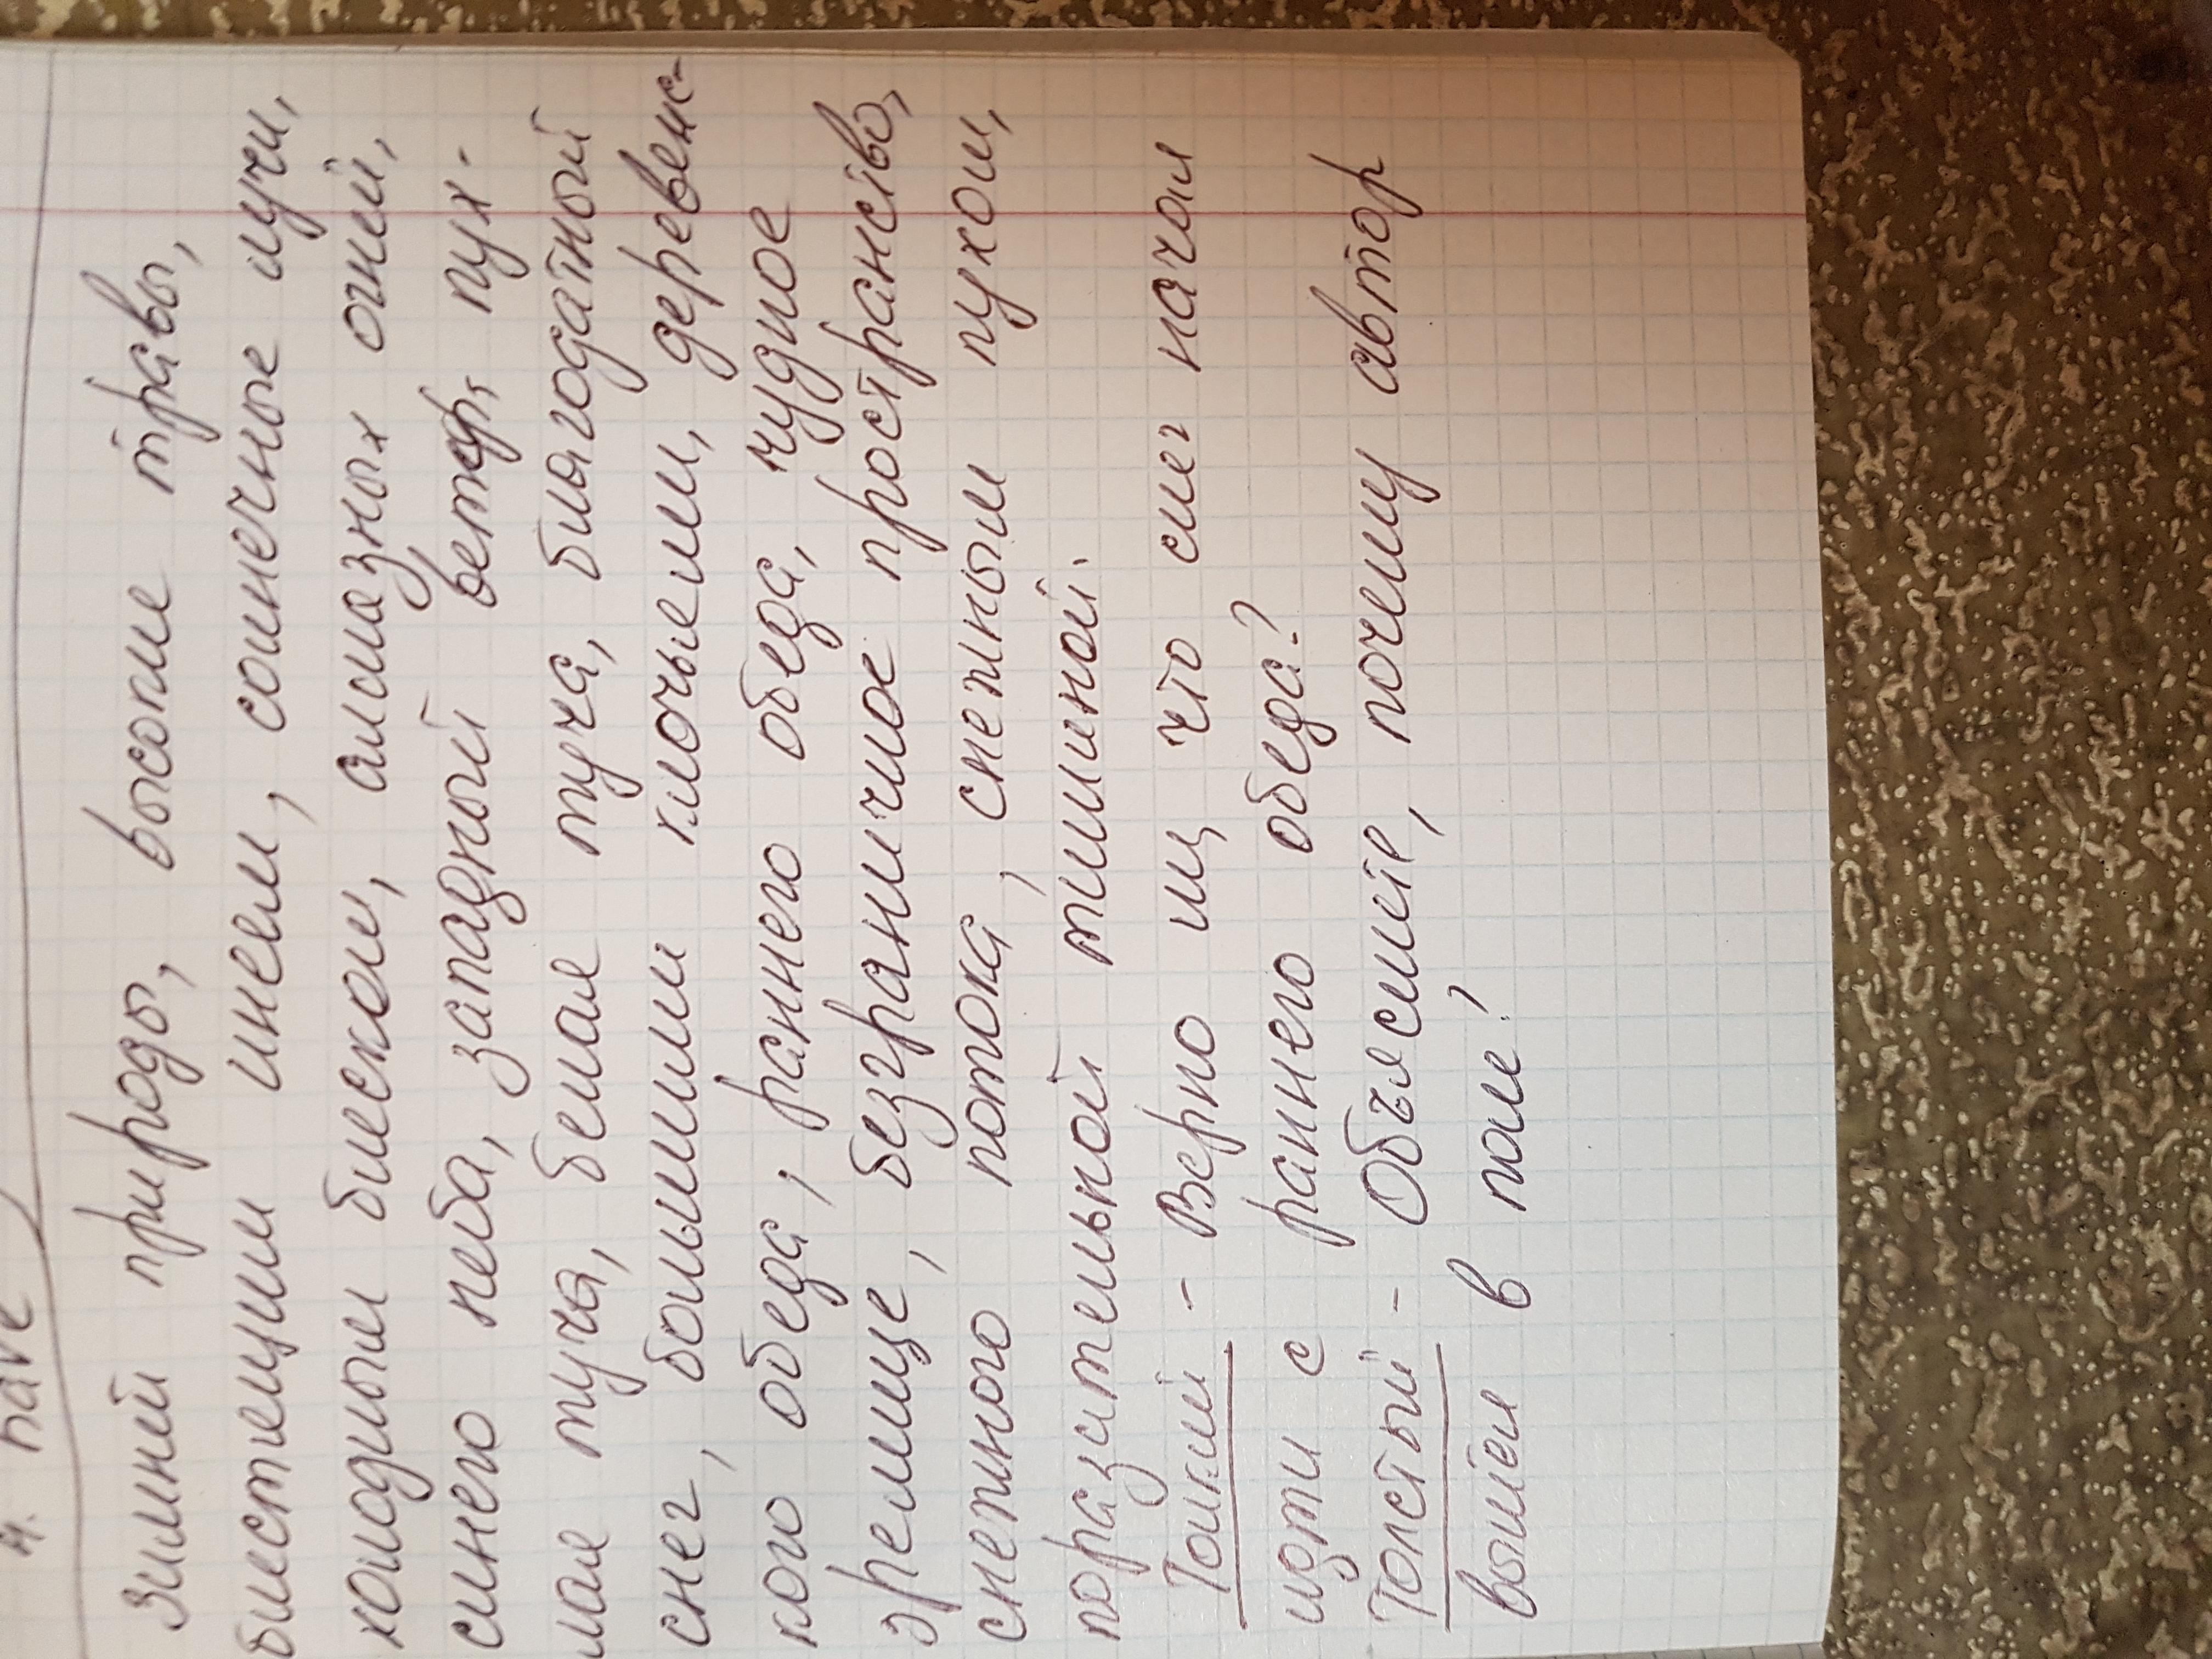 4. have
зимней природы, высокие травы,
блестещим инеем, солнечные лучи,
холодным блеском, алмазных огней,
синего неба, западный ветер, пух-
лая туча, белая туча, благодатный
снег, большими клочьеми, деревенс-
кого обеда, раннего обеда, чудное
зрелище, безграничное пространство,
снежного потока, снежным пухом,
поразительной тишиной.
Тонкий - Верно ли что снег начал
идти с раннего обеда?
Толстый - Объясните, почему автор
вышел в поле?